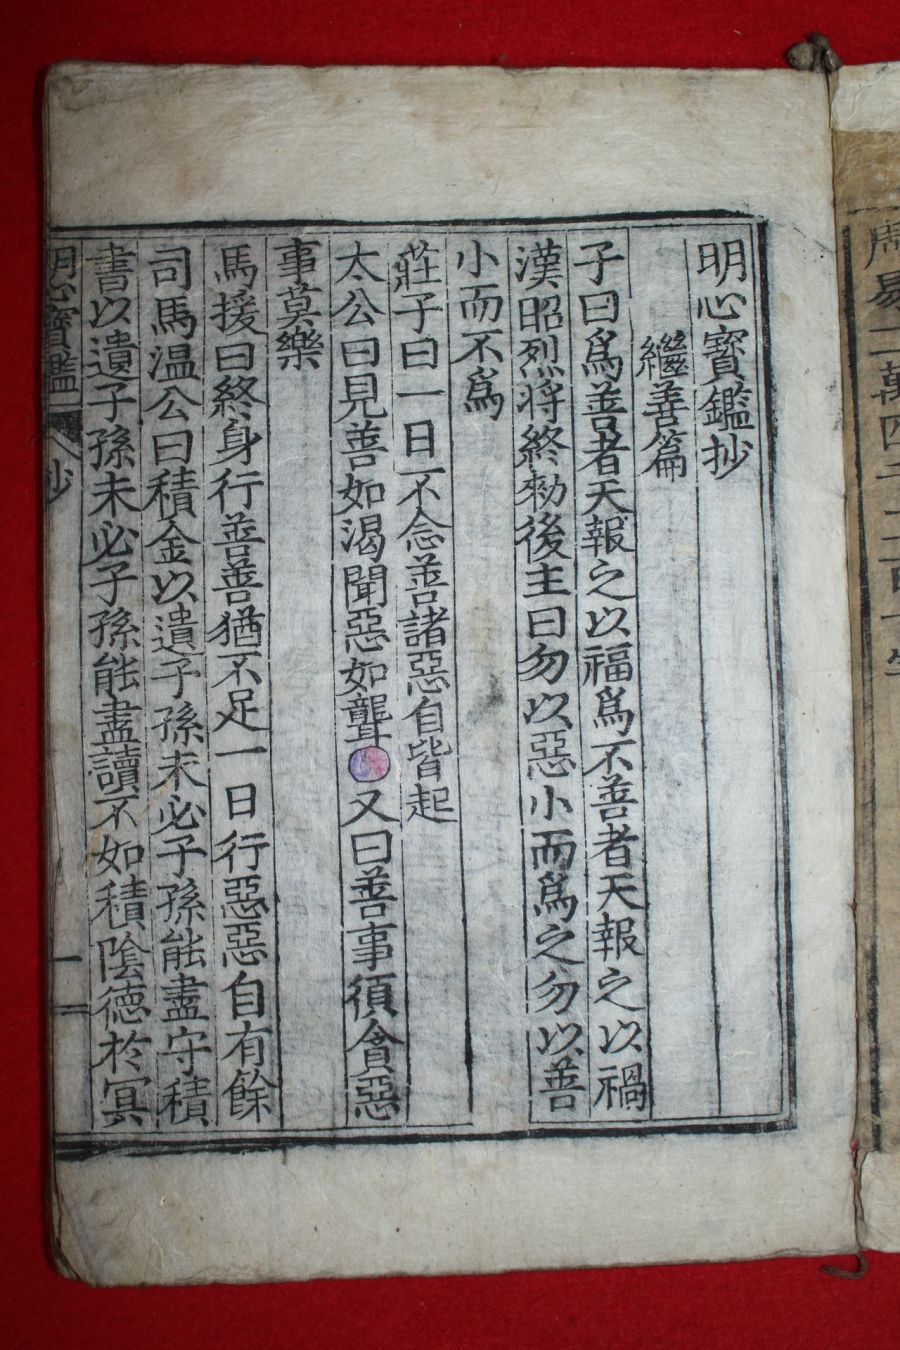 明心寶鑑抄
繼善篇
子曰爲善者天報之以福爲不善者天報之以禍
漢昭烈将終勑後主曰勿以惡小而爲之勿以善
小而不爲
莊子曰一日不念善諸惡自皆起
太公曰見善如渴聞惡如聾又曰善事須貪惡
事莫樂
馬援曰終身行善善猶不足一日行惡惡自有餘
司馬温公曰積金以遺子孫未必子孫能盡守積
書以遺子孫未必子孫能盡讀不如積陰德於冥
明心寶鑑 抄 一